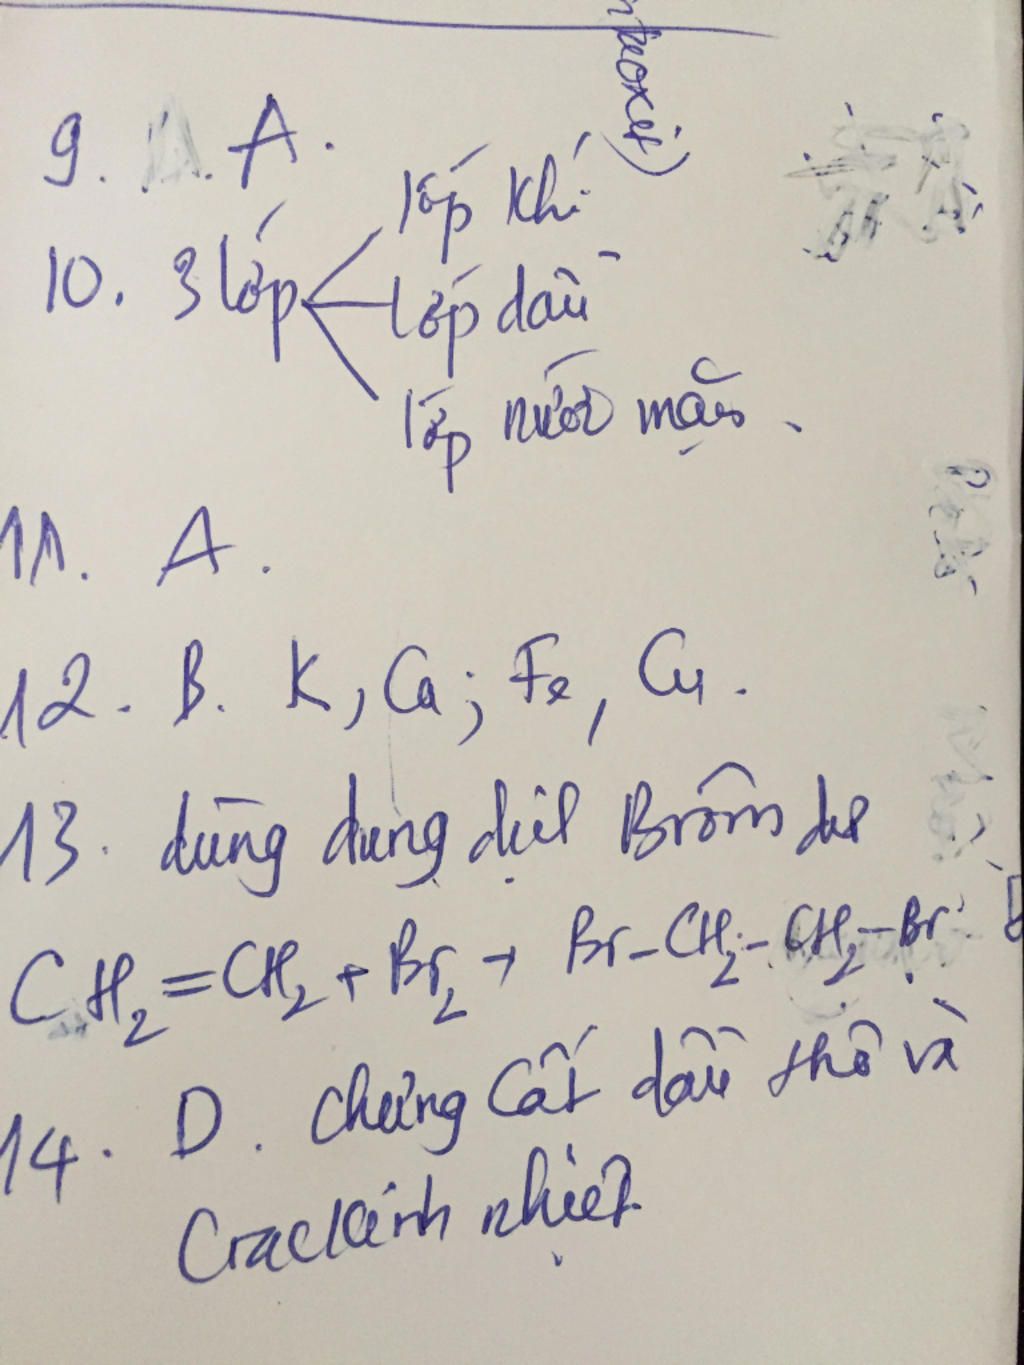 9. A.
lớp khí
10. 3 lớp lớp dầu
lớp nước mặn.
11. A.
12. B. K, Ca; Fe, Cu.
13. dùng dung dịch Brôm dư
CH₂=CH₂ + Br₂ → Br-CH₂-CH₂-Br
14. D. Chưng Cất dầu thô và
Crackinh nhiệt.